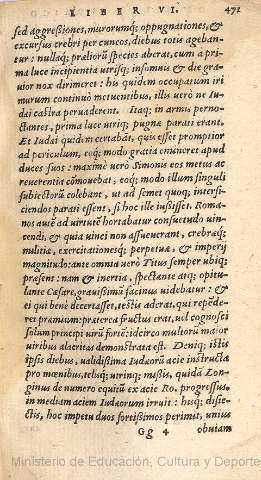 LIBER VI. 471
sed aggreßiones, murorumq; oppugnationes, &
excursus crebri per cuneos, diebus totis ageban-
tur: nullaq; præliorū species aberat, cum a pri-
ma luce incipientia utrisq; insomnis & die gra-
uior nox dirimeret: his quidem occupatum iri
murum continuò metuentibus, illis verò ne Iu-
dæi castra peruaderent. Itaq; in armis perno-
ctantes, prima luce utriq; pugnæ parati erant.
Et Iudæi quidem certabāt, quis esset promptior
ad periculum, eoq; modo gratiā emineret apud
duces suos: maximè verò Simonis eos metus ac
reuerentia cōmouebat, eoq; modo illum singuli
subiectorū colebant, ut ad semet quoq; interfi-
ciendos parati essent, si hoc ille iusisset. Roma-
nos autē ad uirtutē hortabatur consuetudo uin-
cendi, & quia uinci non assueuerant, crebraq;
militia, exercitationesq; perpetuæ, & imperij
magnitudo: ante omnia verò Titus semper ubiq;
præsens: nam & inertia, spectante atq; opitu-
lante Cæsare, grauissimū facinus uidebatur: &
ei qui benè decertasset, testis aderat, qui repēde-
ret præmium: præterea fructus erat, uel cognosci
solum principi virū fortē: idcirco multorū maior
uiribus alacritas demonstrata est. Deniq; istis
ipsis diebus, ualidißima Iudæorū acie instructa
pro mœnibus, telisq; utrinq; mißis, quidā Lon-
ginus de numero equitū ex acie Ro. progressus,
in mediam aciem Iudæorum irruit: hisq; disie-
ctis, hoc impetu duos fortißimos perimit, unius
Gg 4 obuiam
Ministerio de Educación, Cultura y Deporte